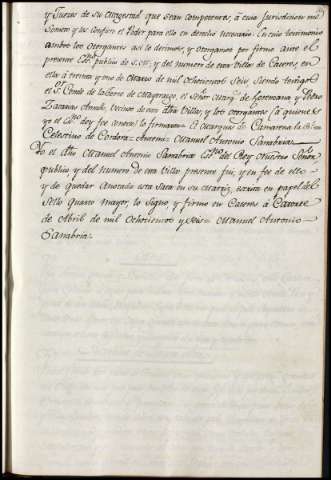 y Juezes de su Magestad que sean competentes, á cuia Jurisdiccion me
Someto y les confiero el Poder para ello en derecho necesario. En cuio testimonio
ambos los otorgantes así lo decimos, y otorgamos por firme ante el
presente Ess.no publico de S. M. y del numero de esta Villa de Cazeres, en
ella á treinta y uno de Marzo de mil Ochocientos Seis, siendo testigos
el S.r Conde de la Torre de Mayoralgo, el Señor Marq.s de
Zacarias Anade, Vecinos de esta dha Villa, y los otorgantes (á quienes
yo el Ess.no doy fee conozco) lo firmaron = El Marques de Camarena la R.l =
Celestino de Cordova = Antemi = Manuel Antonio Sanabria =
Yo el dho Manuel Antonio Sanabria Ess.no del Rey Nuestro Señor,
publico y del Numero de esta Villa presente fui, y en fee de ello
y de quedar Anotada esta Saca en su Matriz, escrita en papel del
Sello Quarto mayor, lo Signo, y firmo en Cazeres á Catorze
de Abril de mil Ochocientos y Seis = Manuel Antonio
Sanabria =